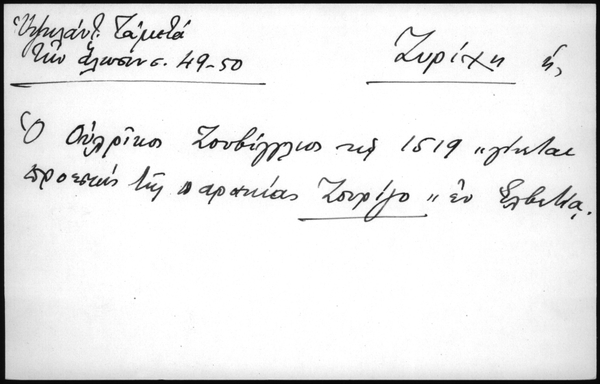 Ὑψηλάντ. Τὰ μετὰ
τὴν ἅλωσιν σ. 49-50
Ζυρίχη ἡ,
Ὁ Οὐλρῖκος Ζουβίγγλιος τῷ 1519 „γίνεται
προεστὼς τῆς παροικίας Ζουρίγο „ ἐν Ἐλβετίᾳ.